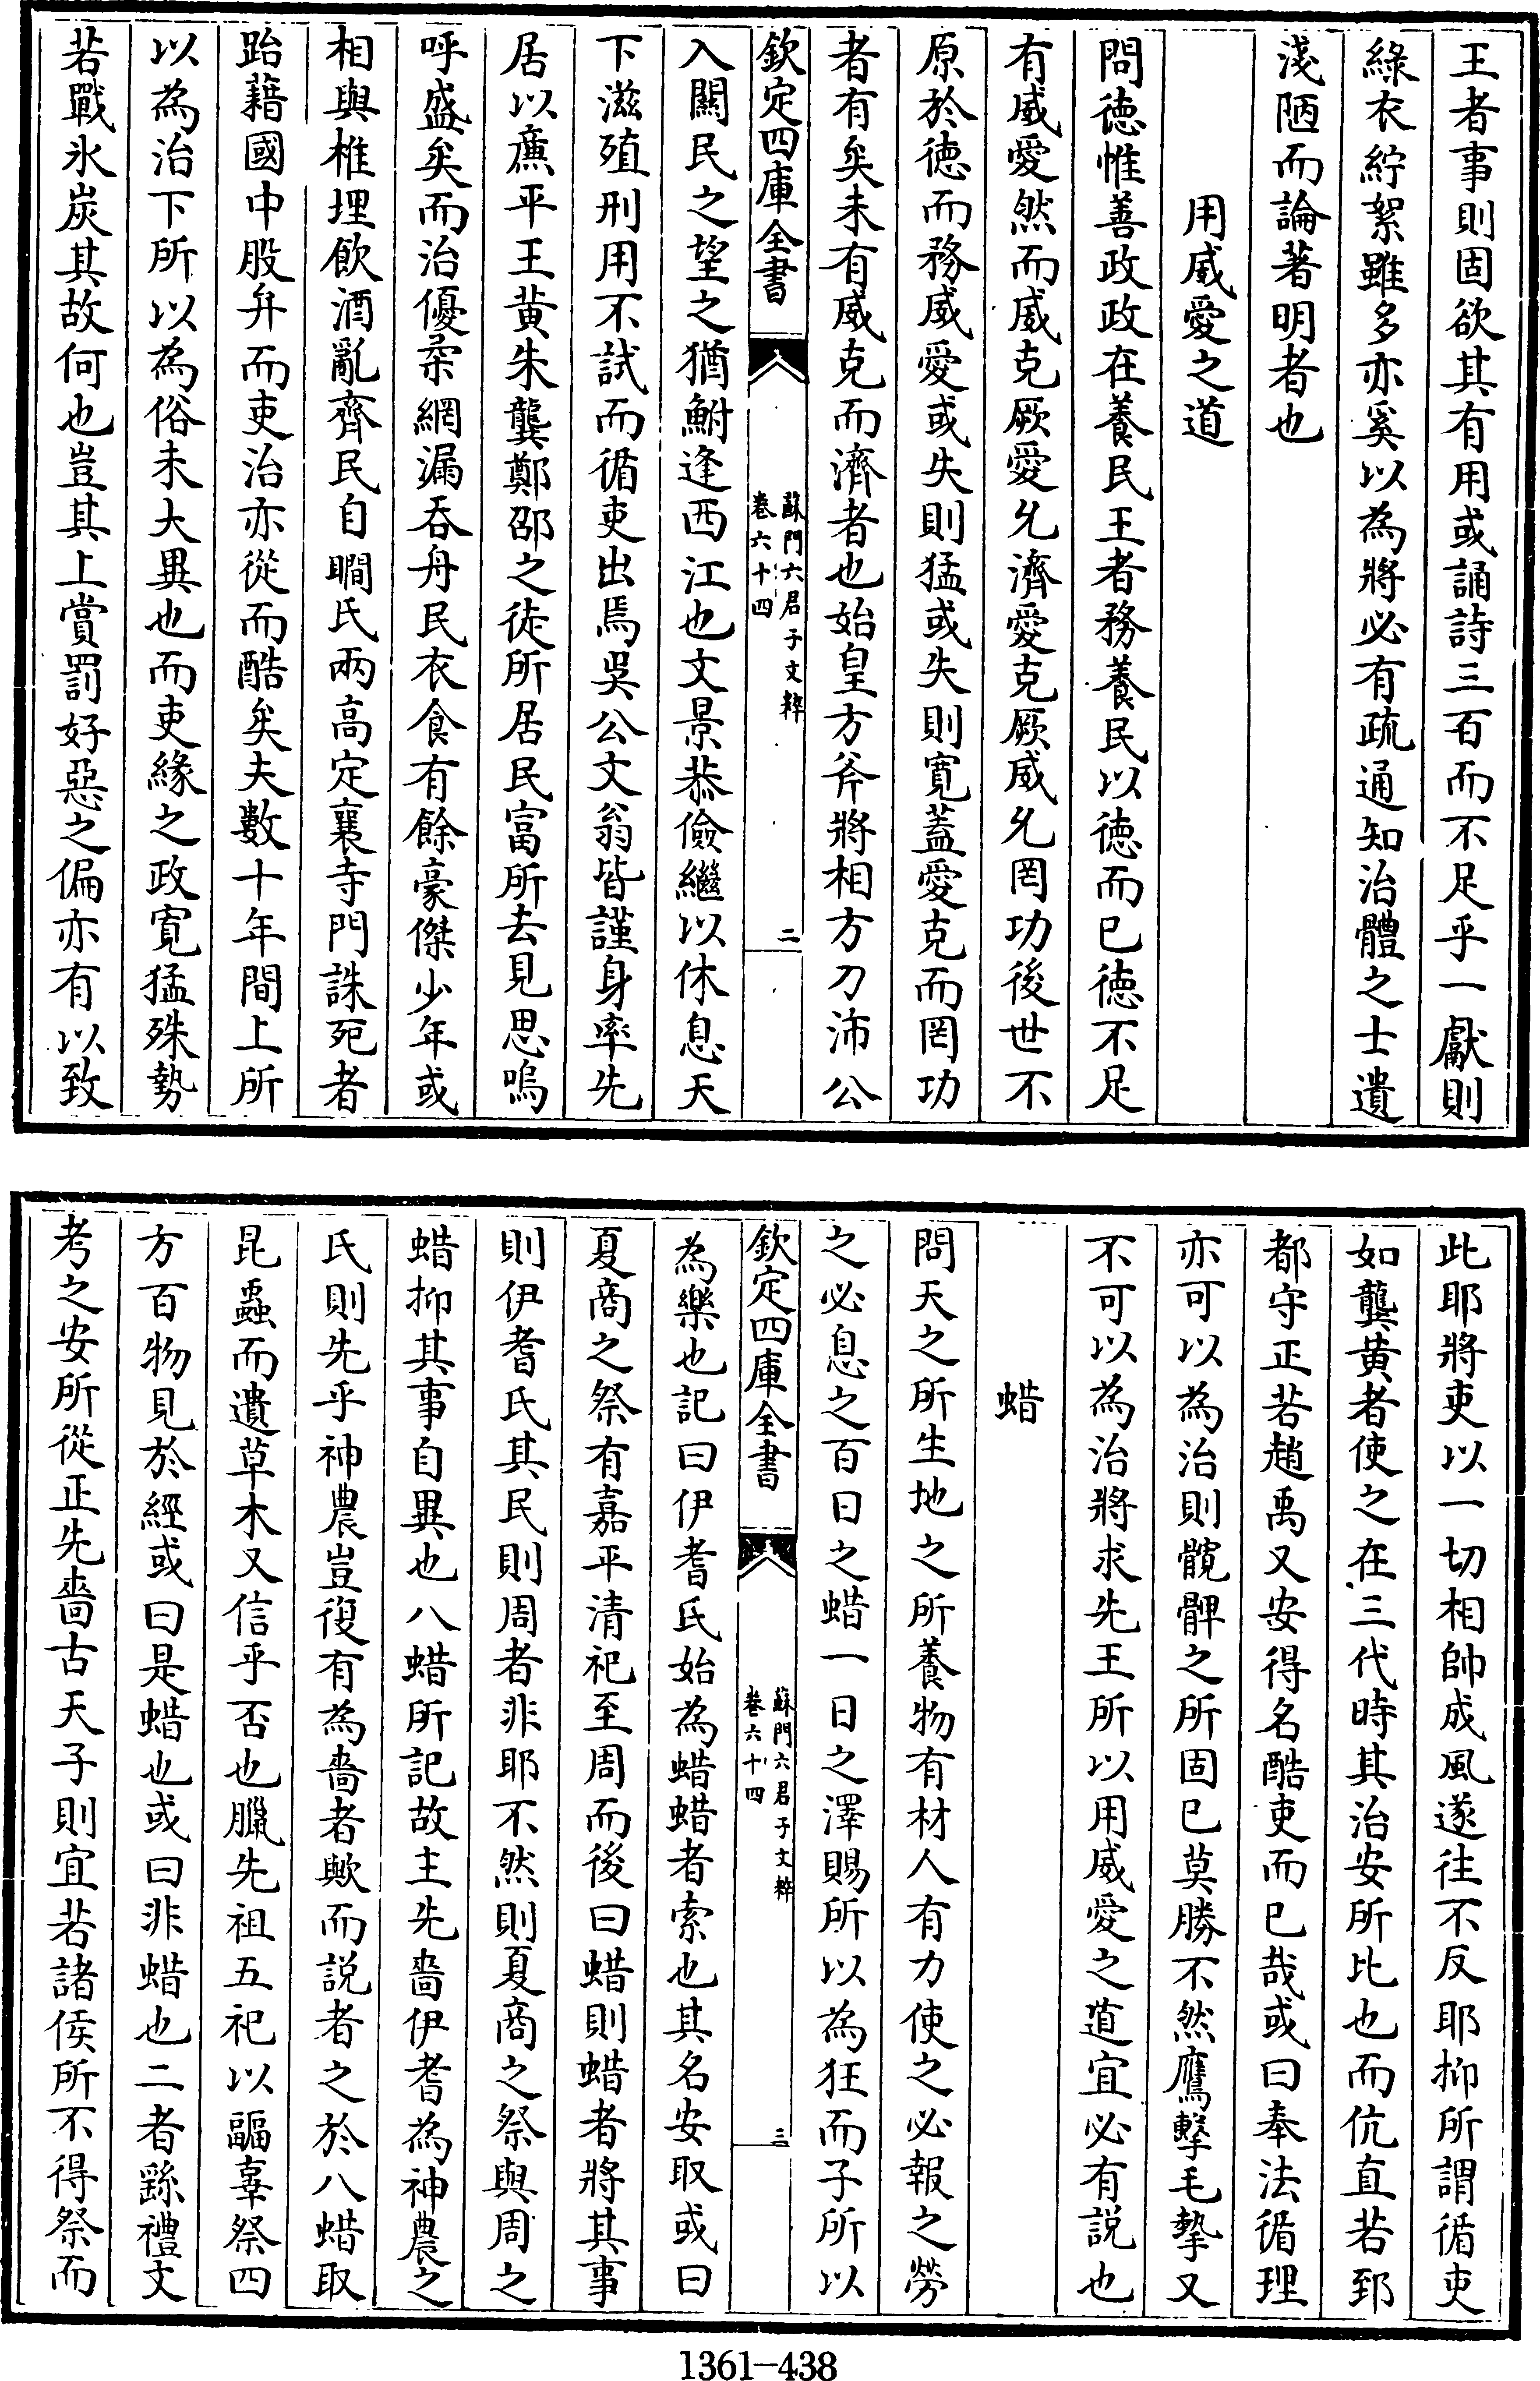 王者事則固欲其有用或誦詩三百而不足乎一獻則
綠衣紵絮雖多亦奚以為將必有疏通知治體之士遺
淺陋而論著明者也
用威愛之道
問徳惟善政政在養民王者務養民以徳而已徳不足
有威愛然而威克厥愛允濟愛克厥威允罔功後世不
原於徳而務威愛或失則猛或失則寛蓋愛克而罔功
者有矣未有威克而濟者也始皇方斧將相方刀沛公
欽定四庫全書
蘇門六君子文粹
卷六十四
二
入闗民之望之猶鮒逢西江也文景恭儉繼以休息天
下滋殖刑用不試而循吏出焉吳公文翁皆謹身率先
居以亷平王黄朱龔鄭邵之徒所居民富所去見思嗚
呼盛矣而治優柔網漏吞舟民衣食有餘豪傑少年或
相與椎埋飲酒亂齊民自瞯氏兩高定襄寺門誅死者
跆藉國中股弁而吏治亦從而酷矣夫數十年間上所
以為治下所以為俗未大異也而吏緣之政寛猛殊勢
若戰氷炭其故何也豈其上賞罰好惡之偏亦有以致
此耶將吏以一切相帥成風遂往不反耶抑所謂循吏
如龔黄者使之在三代時其治安所比也而伉直若郅
都守正若趙禹又安得名酷吏而已哉或曰奉法循理
亦可以為治則髖髀之所固已莫勝不然鷹擊毛摯又
不可以為治將求先王所以用威愛之道宜必有説也
蜡
問天之所生地之所養物有材人有力使之必報之勞
之必息之百日之蜡一日之澤賜所以為狂而子所以
欽定四庫全書
蘇門六君子文粹
卷六十四
三
為樂也記曰伊耆氏始為蜡蜡者索也其名安取或曰
夏商之祭有嘉平清祀至周而後曰蜡則蜡者將其事
則伊耆氏其民則周者非耶不然則夏商之祭與周之
蜡抑其事自異也八蜡所記故主先嗇伊耆為神農之
氏則先乎神農豈復有為嗇者歟而説者之於八蜡取
昆蟲而遺草木又信乎否也臘先祖五祀以疈辜祭四
方百物見於經或曰是蜡也或曰非蜡也二者繇禮文
考之安所從正先嗇古天子則宜若諸侯所不得祭而
1361-438